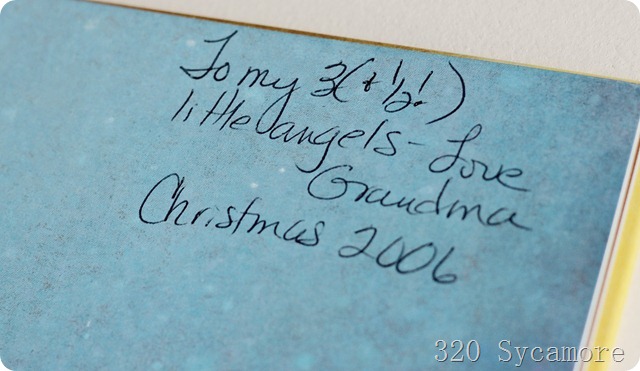 To my 3(+ 1/2!)
little angels - Love
Grandma
Christmas 2006
320 Sycamore